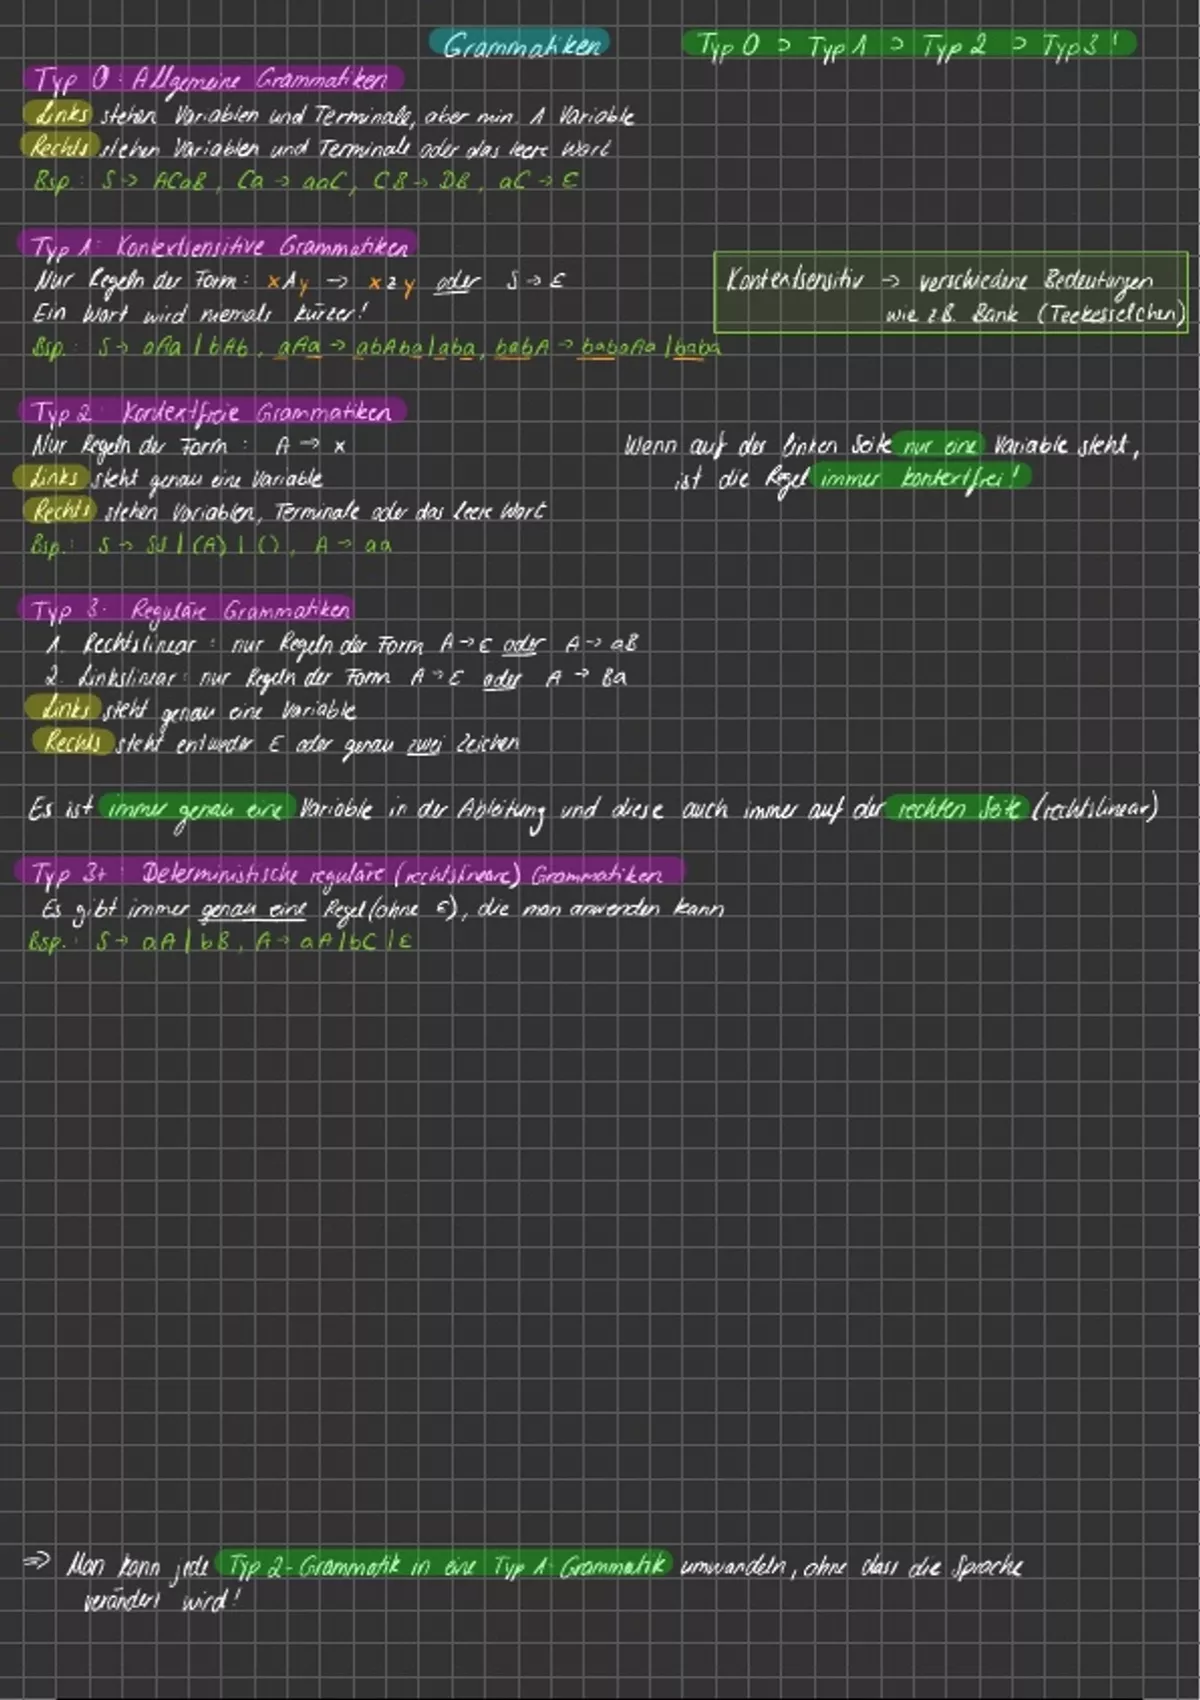 Grammatiken
Typ 0 ⊃ Typ 1 ⊃ Typ 2 ⊃ Typ 3 !
Typ 0: Allgemeine Grammatiken
Links stehen Variablen und Terminale, aber min. 1 Variable
Rechts stehen Variablen und Terminale oder das leere Wort
Bsp.: S → ACaB, Ca → aaC, CB → DB, aC → ε
Typ 1: Kontextsensitive Grammatiken
Nur Regeln der Form: xAy → xzy oder S → ε
Ein Wort wird niemals kürzer!
Bsp.: S → aAa | bAb, aAa → abAba | aba, babA → babaAa | baba
Kontextsensitiv → verschiedene Bedeutungen
wie z.B. Bank (Teekesselchen)
Typ 2: Kontextfreie Grammatiken
Nur Regeln der Form: A → x
Links steht genau eine Variable
Rechts stehen Variablen, Terminale oder das leere Wort
Bsp.: S → SS | (A) | (), A → aa
Wenn auf der linken Seite nur eine Variable steht,
ist die Regel immer kontextfrei!
Typ 3: Reguläre Grammatiken
1. Rechtslinear: nur Regeln der Form A → ε oder A → aB
2. Linkslinear: nur Regeln der Form A → ε oder A → Ba
Links steht genau eine Variable
Rechts steht entweder ε oder genau zwei Zeichen
Es ist immer genau eine Variable in der Ableitung und diese auch immer auf der rechten Seite (rechtslinear)
Typ 3+: Deterministische reguläre (rechtslineare) Grammatiken
Es gibt immer genau eine Regel (ohne ε), die man anwenden kann
Bsp.: S → aA | bB, A → aA | bC | ε
⇒ Man kann jede Typ 2-Grammatik in eine Typ 1-Grammatik umwandeln, ohne dass die Sprache
verändert wird!